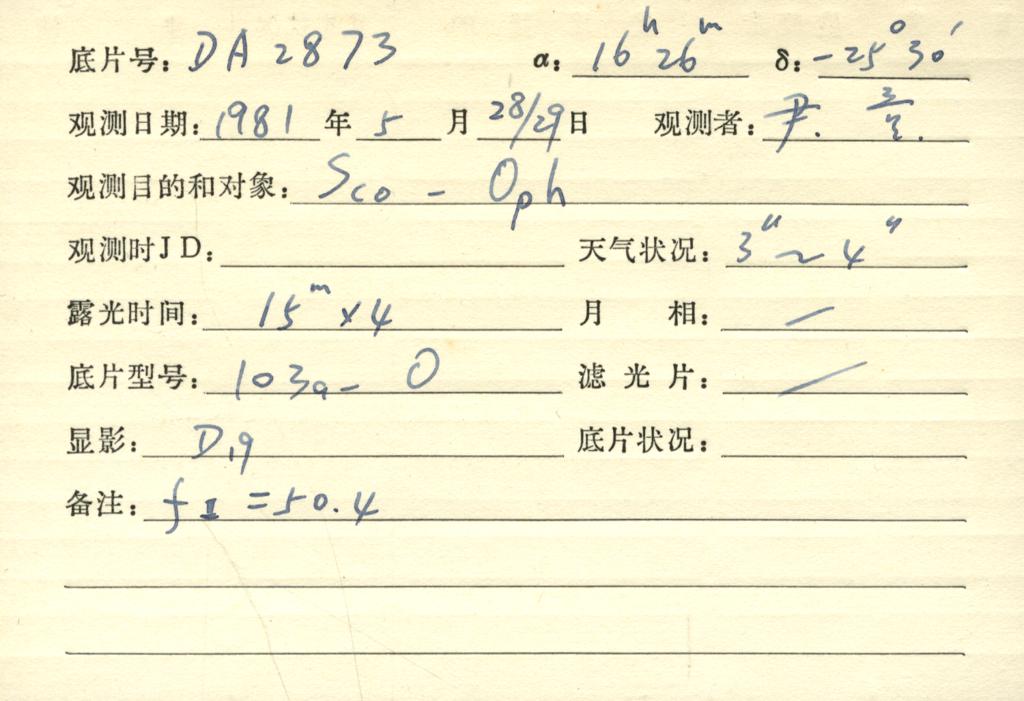 底片号: DA 2873 α: 16h 26m δ: -25° 30′
观测日期: 1981 年 5 月 28/29 日 观测者: 尹.
观测目的和对象: Sco - Oph
观测时JD: 天气状况: 3" ~ 4"
露光时间: 15m × 4 月 相: /
底片型号: 103a-O 滤光片: /
显影: D19 底片状况:
备注: fⅡ = 50.4